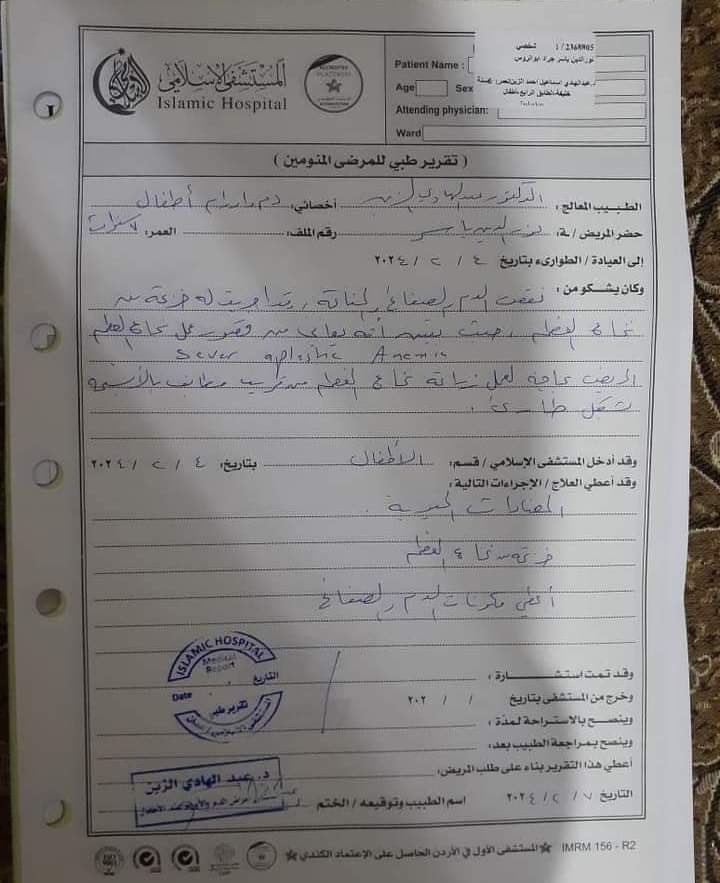 المستشفى الإسلامي
Islamic Hospital
Patient Name :
1 / 2368905 شخصي
نورالدين ياسر جراد ابوالروس
Age Sex
د.عبدالهادي اسماعيل احمد الزبن
الطابق الرابع-اطفال
Attending physician:
Ward
( تقرير طبي للمرضى المنومين )
الطبيب المعالج : الدكتور عبد الهادي الزبن أخصائي: دم وأورام أطفال
حضر المريض / ـة: نور الدين ياسر رقم الملف: العمر: ٧ سنوات
إلى العيادة / الطوارىء بتاريخ ٤ / ٢ / ٢٠٢٤
وكان يشكو من : نقص الدم والصفائح والمناعة ، وقد اجريت له خزعة من
نخاع العظم ، حيث تبين أنه يعاني من قصور عمل نخاع العظم
Sever aplastic Anemia
المريض بحاجة لعمل زراعة نخاع العظم من قريب مطابق بالأنسجة
بشكل طارئ .
وقد أدخل المستشفى الإسلامي / قسم: الأطفال بتاريخ: ٤ / ٢ / ٢٠٢٤
وقد أعطي العلاج / الإجراءات التالية :
المضادات الحيوية .
خزعة من نخاع العظم
أعطي مكونات الدم والصفائح
وقد تمت استشارة :
وخرج من المستشفى بتاريخ / / ٢٠٢
وينصح بالاستراحة لمدة :
وينصح بمراجعة الطبيب بعد:
أعطي هذا التقرير بناء على طلب المريض:
التاريخ ٧ / ٢ / ٢٠٢٤ اسم الطبيب وتوقيعه / الختم
ISLAMIC HOSPITAL
Medical Report
التاريخ
Date
تقرير طبي
د. عبد الهادي الزبن
المستشفى الأول في الأردن الحاصل على الإعتماد الكندي
IMRM 156 - R2